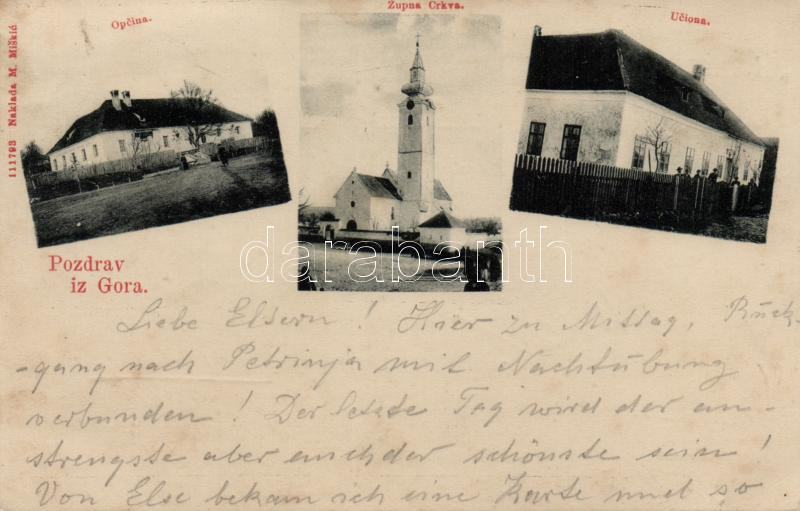 Opčina.
Župna Crkva.
Učiona.
111793 Naklada M. Miškić
darabanth
Pozdrav
iz Gora.
Liebe Eltern! Hier zu Mittag, Rück-
-gang nach Petrinja mit Nachtübung
verbunden! Der letzte Tag wird der an-
strengste aber auch der schönste sein!
Von Else bekam ich eine Karte und so